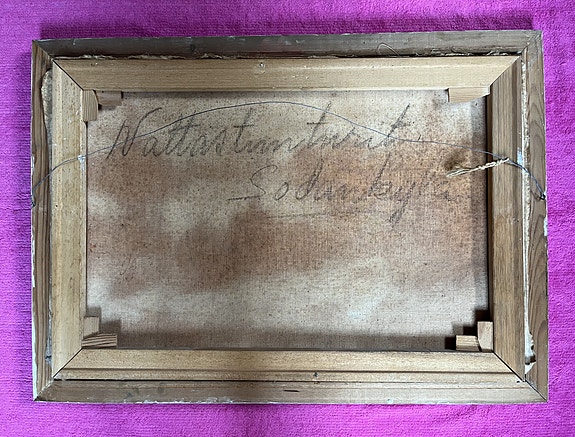 Nattastunturit
Sodankylä